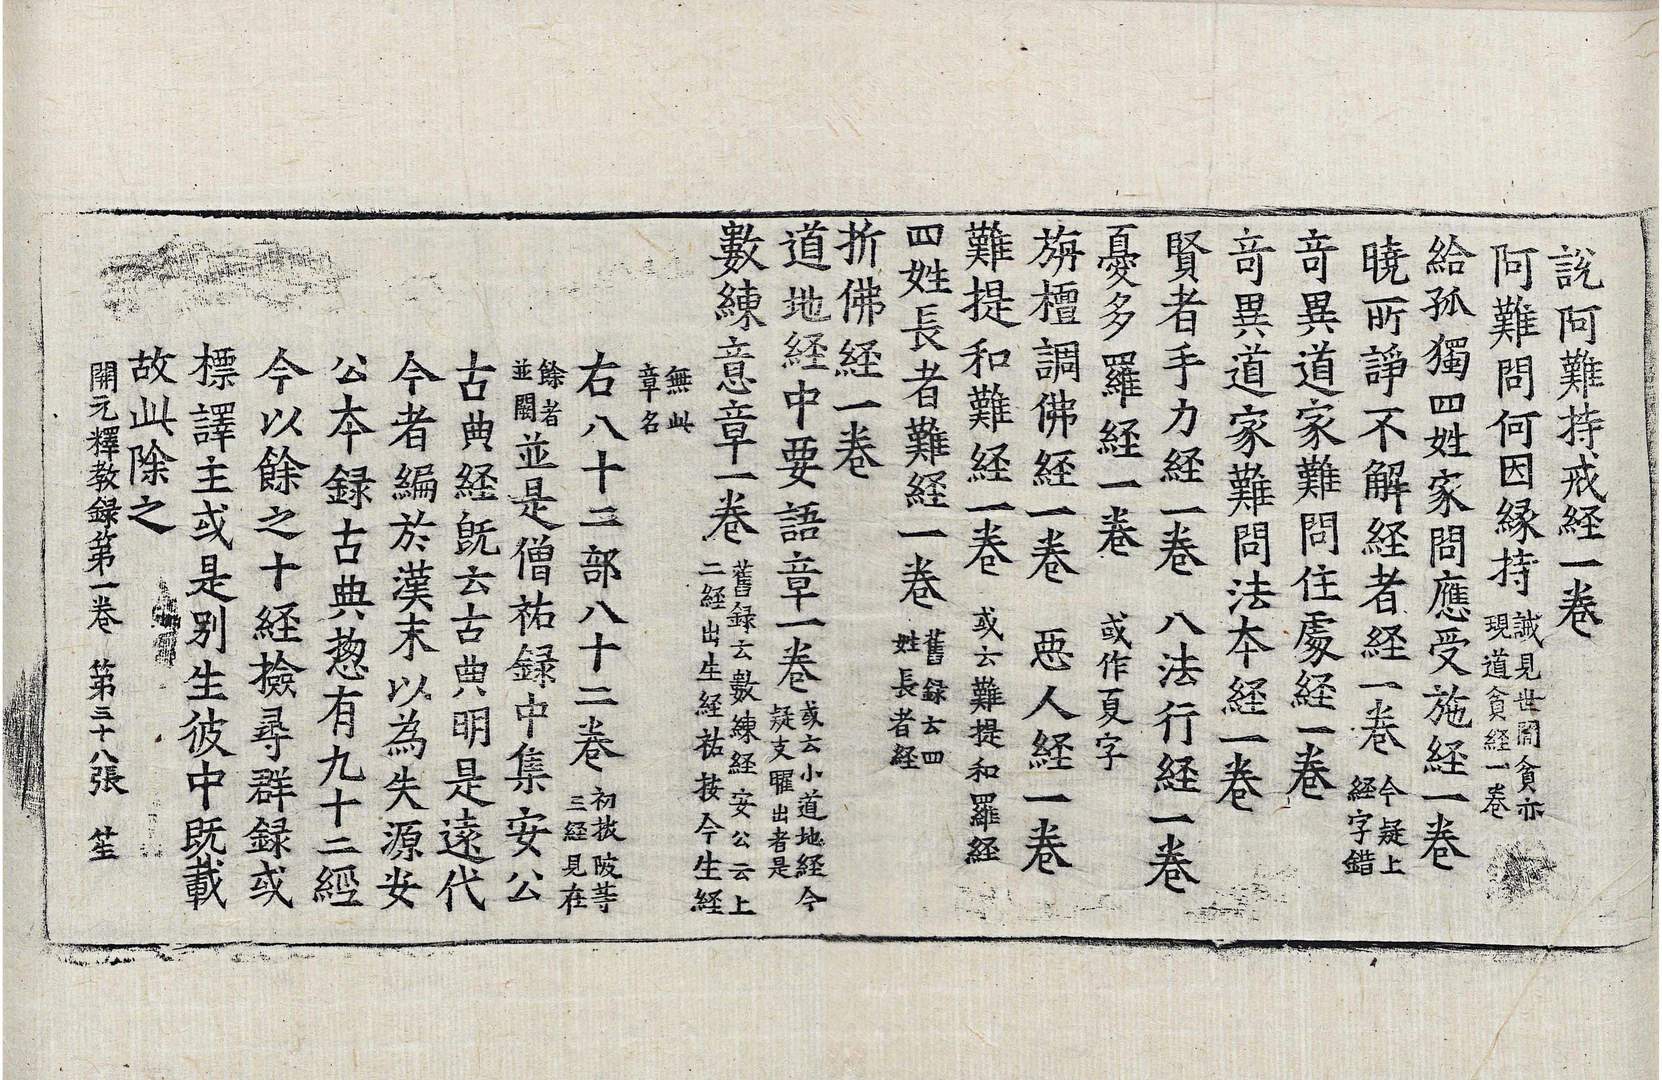 說阿難持戒経一卷
阿難問何因縁持誡見世間貧亦現道貪経一卷
給孤獨四姓家問應受施経一卷
曉所諍不解経者経一卷今疑上経字錯
竒異道家難問住處経一卷
竒異道家難問法本経一卷
賢者手力経一卷 八法行経一卷
憂多羅経一卷或作夏字
旃檀調佛経一卷 惡人経一卷
難提和難経一卷或云難提和羅経
四姓長者難経一卷舊録云四姓長者経
折佛経一卷
道地経中要語章一卷或云小道地経今疑支曜出者是
數練意章一卷舊録云數練経安公云上二経出生経祐按今生経
無此章名
右八十三部八十二卷初披陂等三経見在
餘者並闕並是僧祐録中集安公
古典経旣云古典明是遠代
今者編於漢末以為失源安
公本録古典惣有九十二經
今以餘之十経撿尋群録或
標譯主或是别生彼中既載
故此除之
開元釋教録第一卷 第三十八張 笙